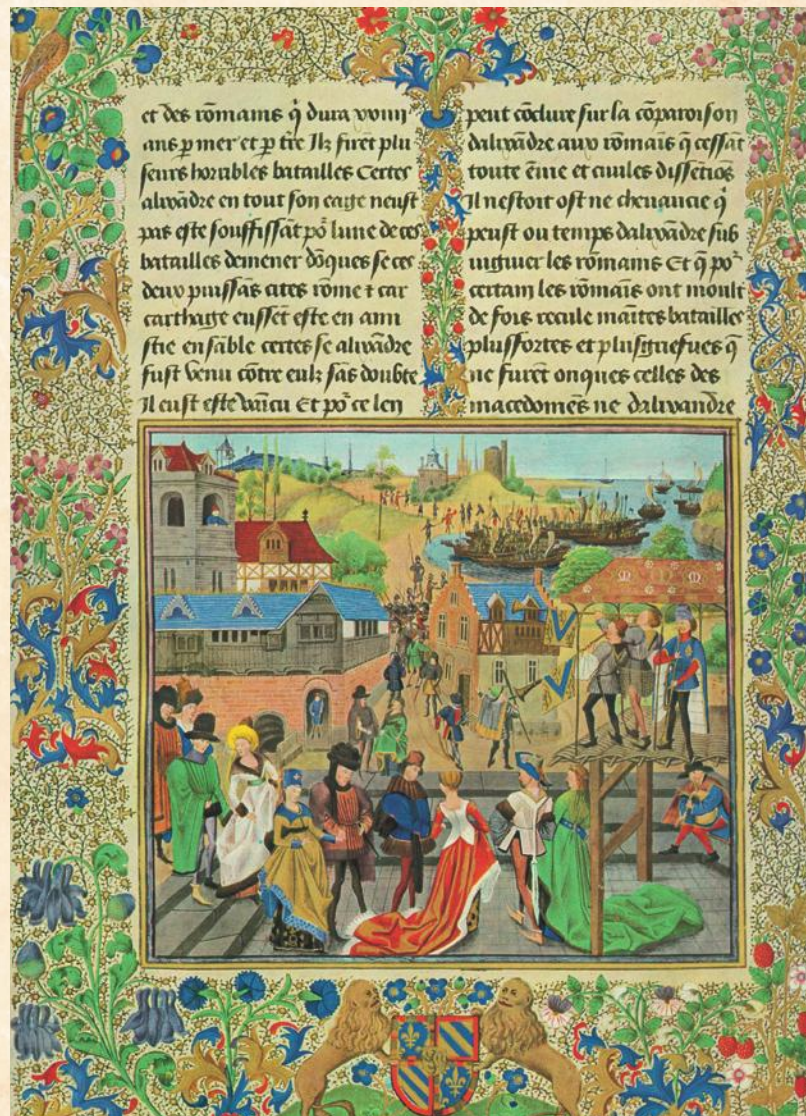 et des rōmains q̄ dura vviiii
ans p̄ mer et p̄ t̄re Ilz firēt plu
seurs horribles batailles Certes
alixādre en tout son eage neust
pas este souffissāt po᷑ lune de ces
batailles demener dōques se ces
deux puissās cites rōme ⁊ car
carthage eussēt este en ami
stie ensāble certes se alixādre
fust venu cōtre eulz sās doubte
Il eust este vaīcu Et po᷑ ce len
peut cōclure sur la cōparoison
dalixādre aux rōmains q̄ cessāt
toute ēnie et ciuiles dissētiōs
Il nestoit ost ne cheuaucie q̄
peust ou temps dalixādre sub
uiguier les rōmains Et q̄ po᷑
certain les rōmaīs ont moult
de fois recule maītes batailles
plus fortes et plus griefues q̄
ne furēt onques celles des
macedoniēs ne dalixandre